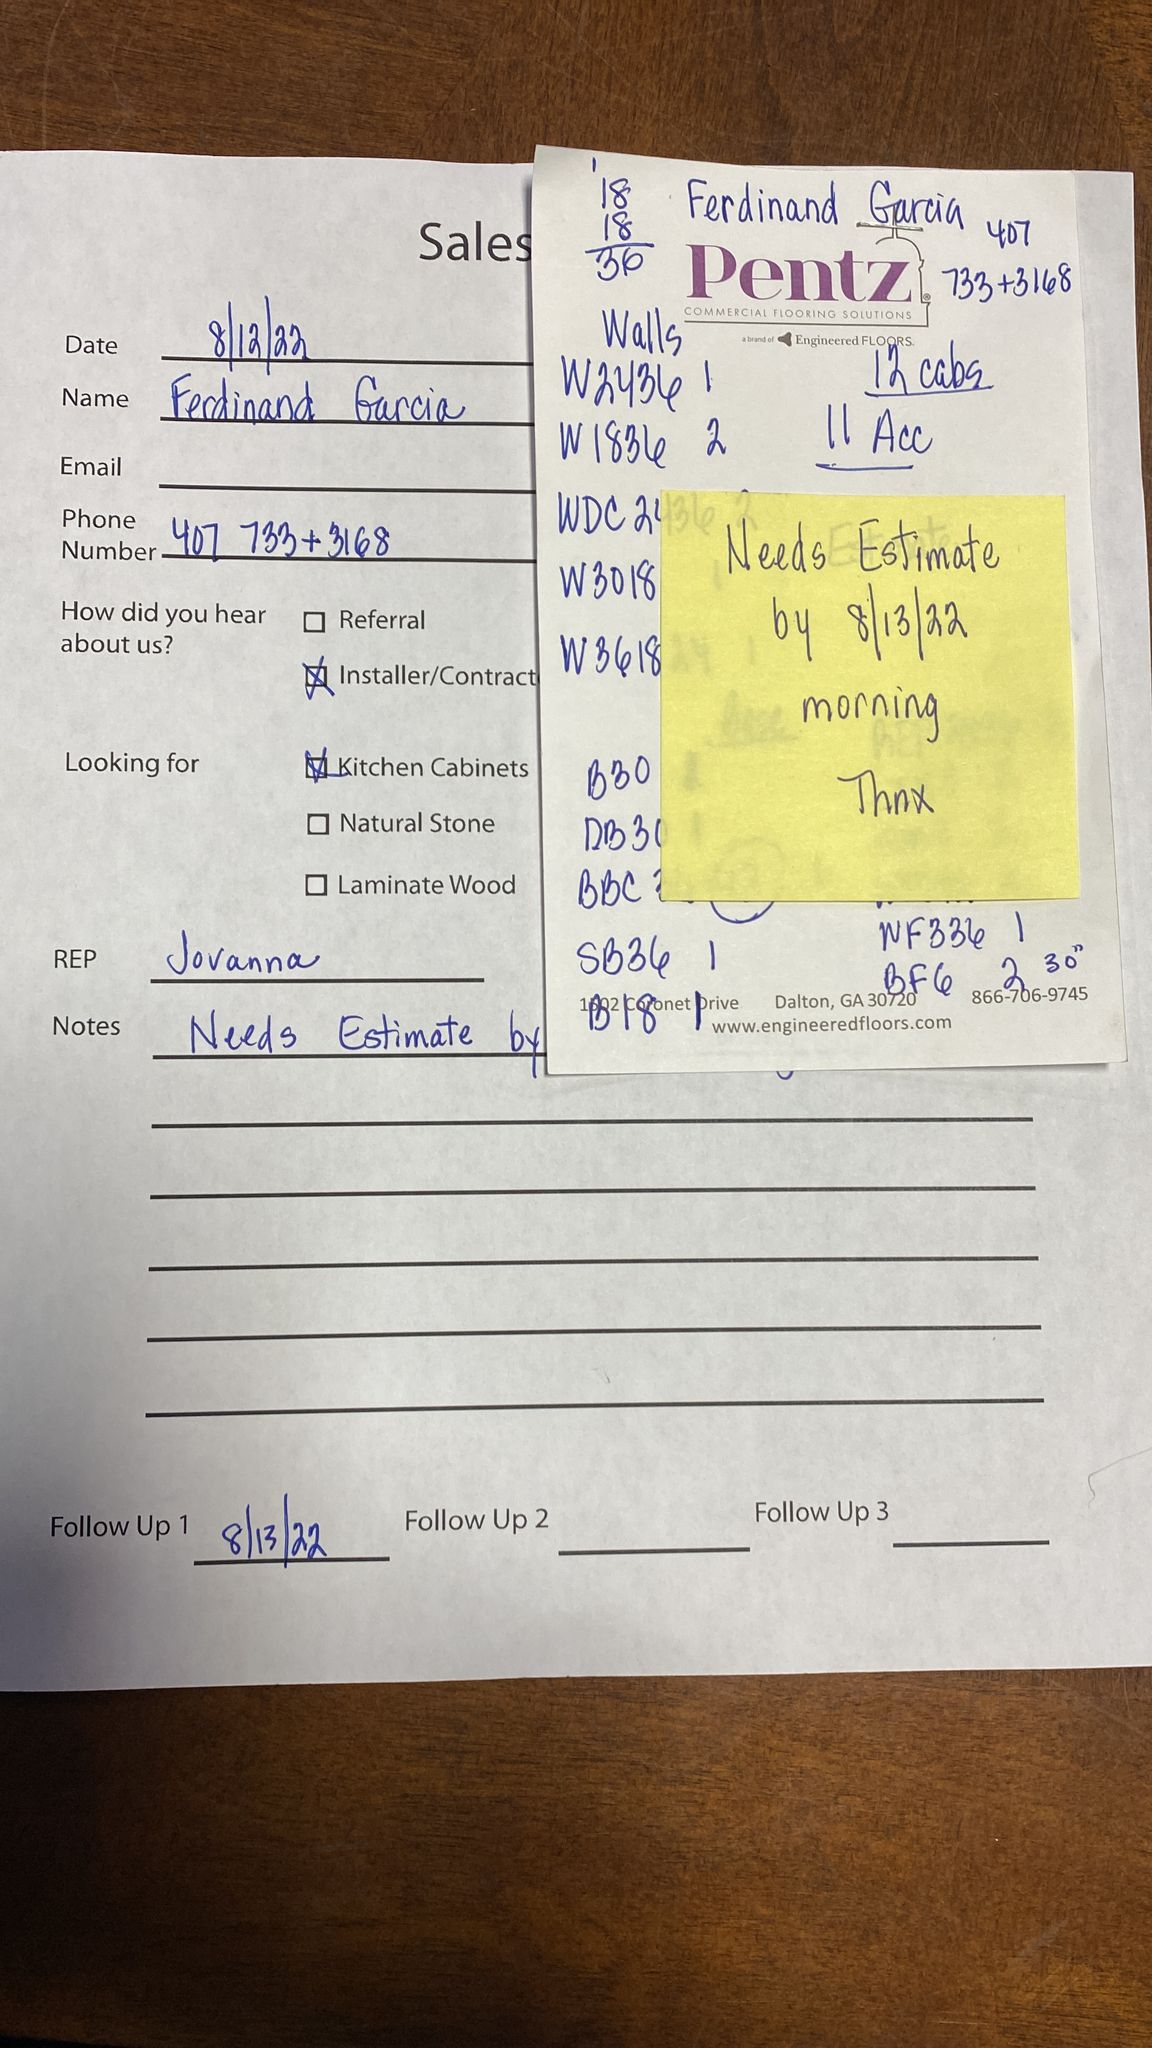 Sales
Date 8/12/22
Name Ferdinand Garcia
Email
Phone
Number 407 733+3168
How did you hear
about us?
Referral
Installer/Contract
Looking for
Kitchen Cabinets
Natural Stone
Laminate Wood
REP Jovanna
Notes Needs Estimate by
Follow Up 1 8/13/22
Follow Up 2
Follow Up 3
18
18
36
Ferdinand Garcia
407
733+3168
Pentz
COMMERCIAL FLOORING SOLUTIONS
a brand of Engineered FLOORS.
Walls
12 cabs
11 Acc
W2436 1
W1836 2
WDC 2436 2
W3018
W3618
B30
DB30
BBC
SB36 1
B18 1
WF336 1
BF6 2 30"
1502 Coronet Drive Dalton, GA 30720 866-706-9745
www.engineeredfloors.com
Needs Estimate
by 8/13/22
morning
Thnx